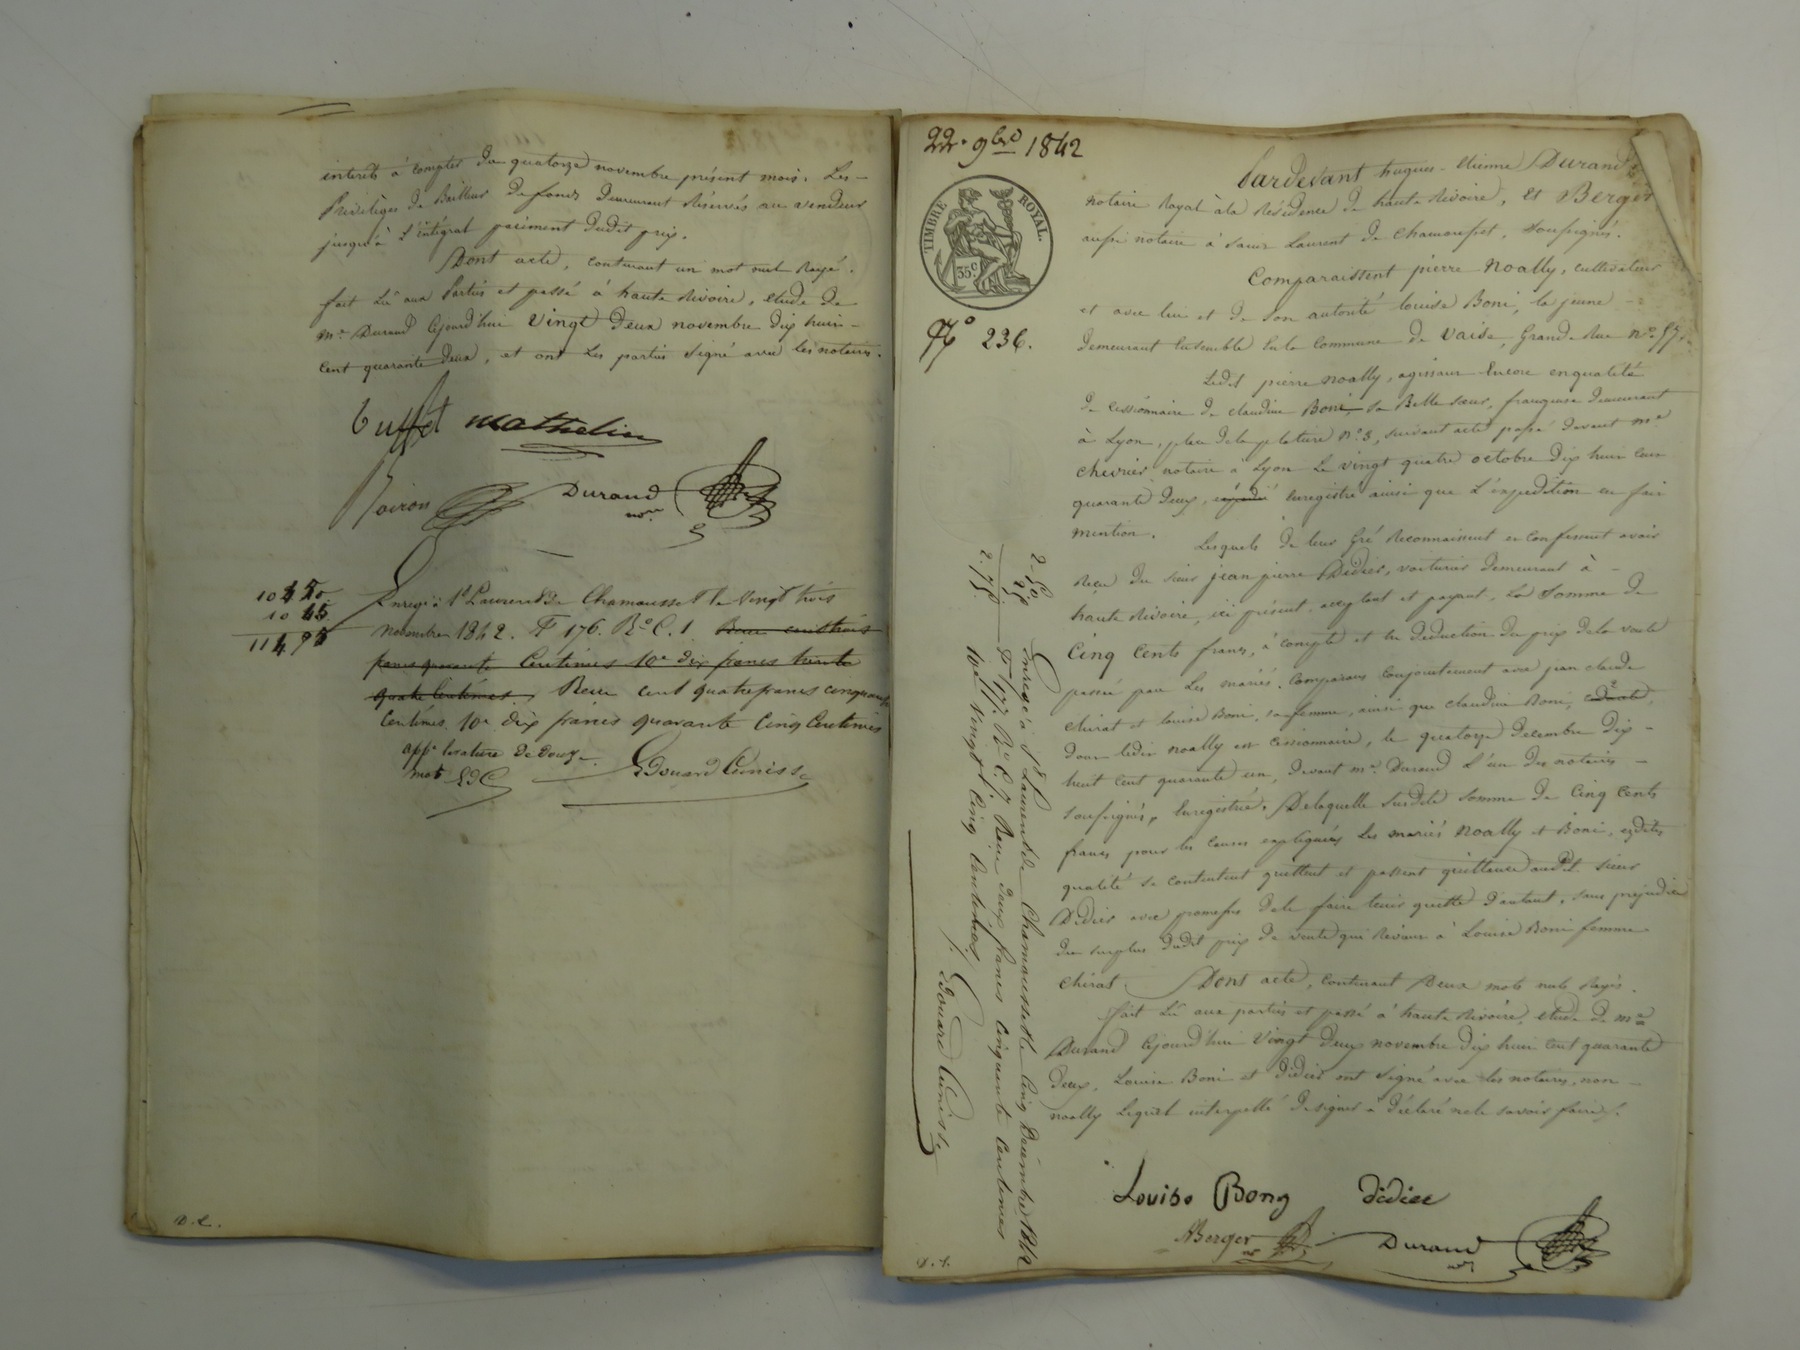 interêts à compter du quatorze novembre présent mois. Les
Privilèges de Bailleur de fonds demeurent Réservés au vendeur
jusqu'à l'intégral paiment dudit prix.
Dont acte, contenant un mot nul Rayé.
fait Lu aux Parties et passé à haute Rivoire, étude de
me. Durand Cejourd'hui vingt deux novembre dix huit
cent quarante deux, et ont les parties signé avec les notaires.
mathelin
Durand
nore
104 50
10 45
114 95
Enregé à St Laurent de Chamousset le vingt trois
novembre 1842. Fo 176. Ro C. 1. Recu cent trois
francs quarante Centimes 10e dix francs trente
quatre Centimes. Recu cent quatre francs cinquante
Centimes 10e dix francs quarante Cinq Centimes
appé la rature de douze
mots EdC Edouard Cunisse
D. L.
22. 9bre 1842
TIMBRE ROYAL.
35c
No 236.
Pardevant hugues-etienne Durand
notaire Royal à la Résidence de haute Rivoire, et Berger
aussi notaire à Saint Laurent de Chamousset, soussignés.
Comparaissent pierre Noally, cultivateur
et avec lui et de son autorité louise Boni, la jeune
demeurant Ensemble En la Commune de Vaise, Grande Rue no 57.
Ledit pierre noally, agissant Encore en qualité
de cessionnaire de claudine Boni, sa Belle sœur, demeurant
à Lyon, place de la plature no 3, suivant acte passé devant me
chevrier notaire à Lyon Le vingt quatre octobre dix huit cent
quarante deux, enregistré ainsi que L'expédition en fait
mention.
Lesquels de leur Gré Reconnaissent et confessent avoir
Reçu du sieur jean pierre Didier, voiturier demeurant à
haute Rivoire, ici présent, acceptant et payant, La Somme de
Cinq Cents francs, à compte et en déduction du prix de la vente
passée par Les mariés Comparans conjointement avec jean claude
Chirat et louise Boni, sa femme, ainsi que claudine Boni,
dont ledit noally est Cessionnaire, le quatorze décembre dix
huit cent quarante un, devant me. Durand L'un des notaires
soussignés, Enregistré. De laquelle susdite somme de Cinq Cents
francs pour les causes expliquées Les mariés Noally et Boni, esdites
qualité se contentent quittent et passent quittance audit sieur
Didier avec promesse de le faire tenir quitte d'autant, sans préjudice
du surplus dudit prix de vente qui Revient à Louise Boni femme
Chirat. Dont acte, contenant Deux mots nuls Rayés.
fait Lu aux parties et passé à haute Rivoire, étude de me
Durand Cejourd'hui vingt deux novembre dix huit cent quarante
deux. Louise Boni et Didier ont Signé avec les notaires, non
noally Lequel interpellé de signer a déclaré ne le savoir faire.
Louise Bony didier
Berger Durand
nre
2 - 50
25
2. 75
Enregé à St Laurent de Chamousset le Cinq Décembre 1842
Fo 177. Ro C. 7 Recu deux francs Cinquante Centimes
10e Vingt Cinq Centimes
Edouard Cunisse
D. L.